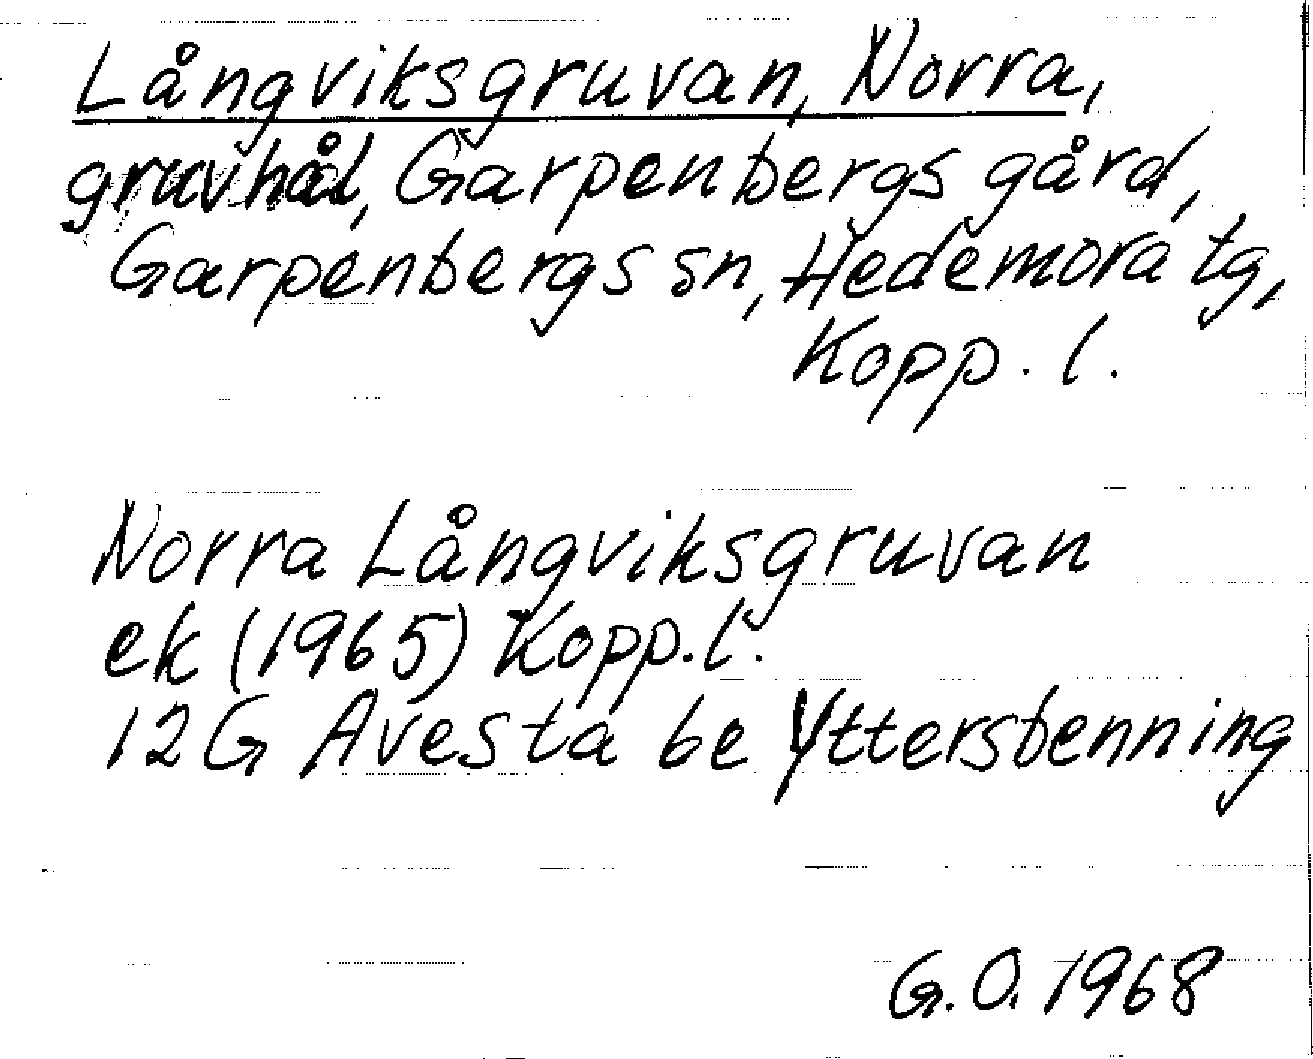 Långviksgruvan, Norra,
gruvhål, Garpenbergs gård,
Garpenbergs sn, Hedemora tg,
Kopp. l.
Norra Långviksgruvan
ek (1965) Kopp. l.
12G Avesta 6e Yttersbenning
G. O. 1968